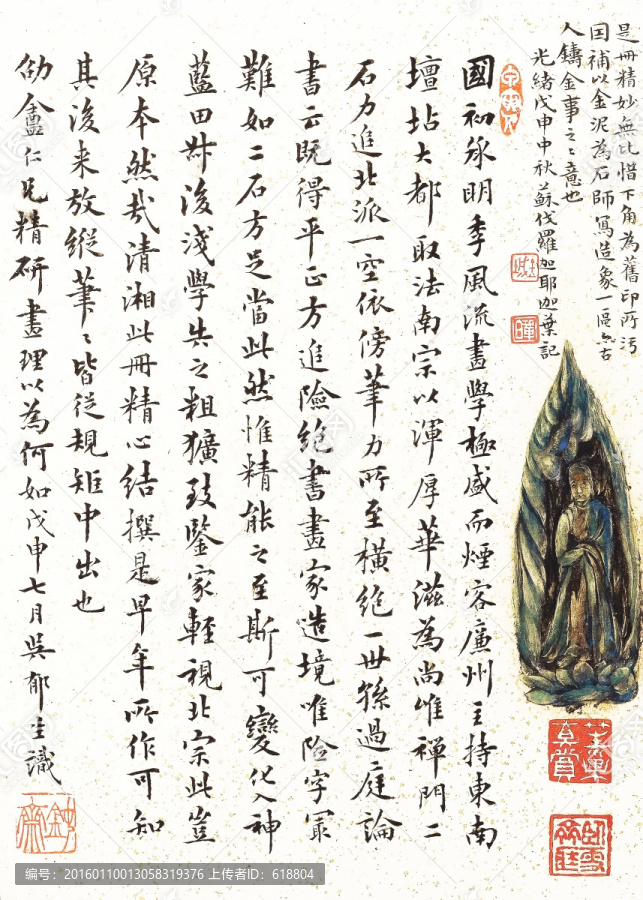 是冊精妙無比惜下角為舊印所污
因補以金泥為石師寫造象一區亦古
人鑄金事之之意也
光緒戊申中秋蘇伐羅迦耶迦葉記
國初承明季風流畫學極盛而煙客廉州主持東南
壇坫大都取法南宗以渾厚華滋為尚惟禪門二
石力追北派一空依傍筆力所至橫絕一世孫過庭論
書云既得平正方追險絕書畫家造境唯險字最
難如二石方足當此然惟精能之至斯可變化入神
藍田叔後淺學失之粗獷致鑒家輕視北宗此豈
原本然哉清湘此冊精心結撰是早年所作可知
其後來放縱筆筆皆從規矩中出也
劬盦仁兄精研畫理以為何如戊申七月吳郁生識
编号：20160110013058319376 上传者ID：618804